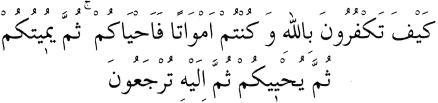 كَيْفَ تَكْفُرُونَ بِاللّٰهِ وَ كُنْتُمْ اَمْوَاتًا فَاَحْيَاكُمْ ۚ ثُمَّ يُمِيتُكُمْ
ثُمَّ يُحْيِيكُمْ ثُمَّ اِلَيْهِ تُرْجَعُونَ